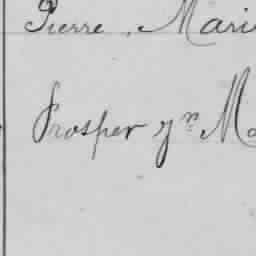 Pierre, Mari
Prosper jn Ma